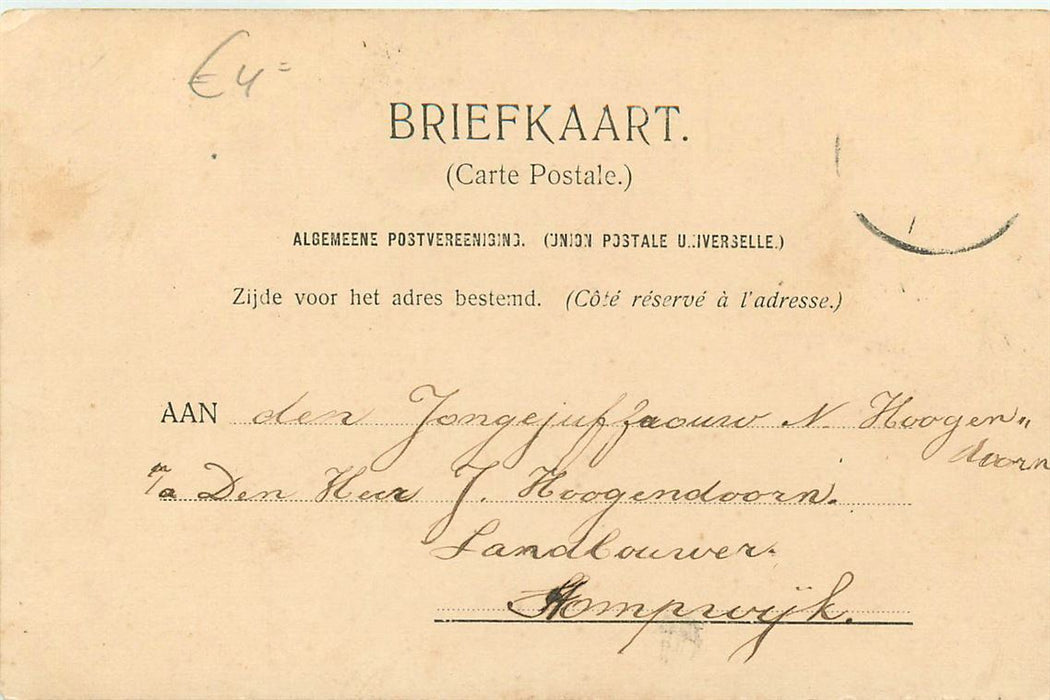 € 4=
BRIEFKAART.
(Carte Postale.)
ALGEMEENE POSTVEREENIGING. (UNION POSTALE UNIVERSELLE.)
Zijde voor het adres bestemd. (Côté réservé à l'adresse.)
AAN den Jongejuffrouw N. Hoogen„
doorn
p/a Den Heer J. Hoogendoorn.
Landbouwer.
Stompwijk.